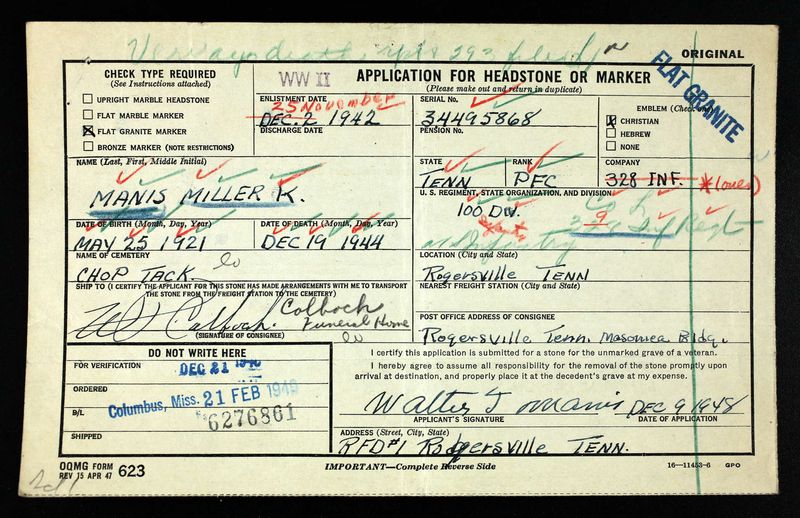 ORIGINAL
FLAT GRANITE
CHECK TYPE REQUIRED
(See Instructions attached)
UPRIGHT MARBLE HEADSTONE
FLAT MARBLE MARKER
X FLAT GRANITE MARKER
BRONZE MARKER (NOTE RESTRICTIONS)
WW II
APPLICATION FOR HEADSTONE OR MARKER
(Please make out and return in duplicate)
ENLISTMENT DATE
25 November
DEC. 2 1942
DISCHARGE DATE
SERIAL No.
34495868
PENSION No.
EMBLEM (Check one)
X CHRISTIAN
HEBREW
NONE
NAME (Last, First, Middle Initial)
MANIS MILLER K.
STATE
TENN
RANK
PFC
COMPANY
328 INF.
U. S. REGIMENT, STATE ORGANIZATION, AND DIVISION
100 DIV.
DATE OF BIRTH (Month, Day, Year)
MAY 25 1921
DATE OF DEATH (Month, Day, Year)
DEC 19 1944
NAME OF CEMETERY
CHOP TACK.
LOCATION (City and State)
Rogersville TENN
SHIP TO (I CERTIFY THE APPLICANT FOR THIS STONE HAS MADE ARRANGEMENTS WITH ME TO TRANSPORT
THE STONE FROM THE FREIGHT STATION TO THE CEMETERY)
Colboch
Funeral Home
(SIGNATURE OF CONSIGNEE)
NEAREST FREIGHT STATION (City and State)
POST OFFICE ADDRESS OF CONSIGNEE
Rogersville Tenn. Bldg.
DO NOT WRITE HERE
FOR VERIFICATION
DEC 21
ORDERED
Columbus, Miss. 21 FEB 1949
B/L
6276861
SHIPPED
I certify this application is submitted for a stone for the unmarked grave of a veteran.
I hereby agree to assume all responsibility for the removal of the stone promptly upon
arrival at destination, and properly place it at the decedent's grave at my expense.
Walter Manis DEC 9 1948
APPLICANT'S SIGNATURE
DATE OF APPLICATION
ADDRESS (Street, City, State)
RFD#1 Rogersville TENN.
OQMG FORM
REV 15 APR 47 623
IMPORTANT—Complete Reverse Side
16—11453-6 GPO